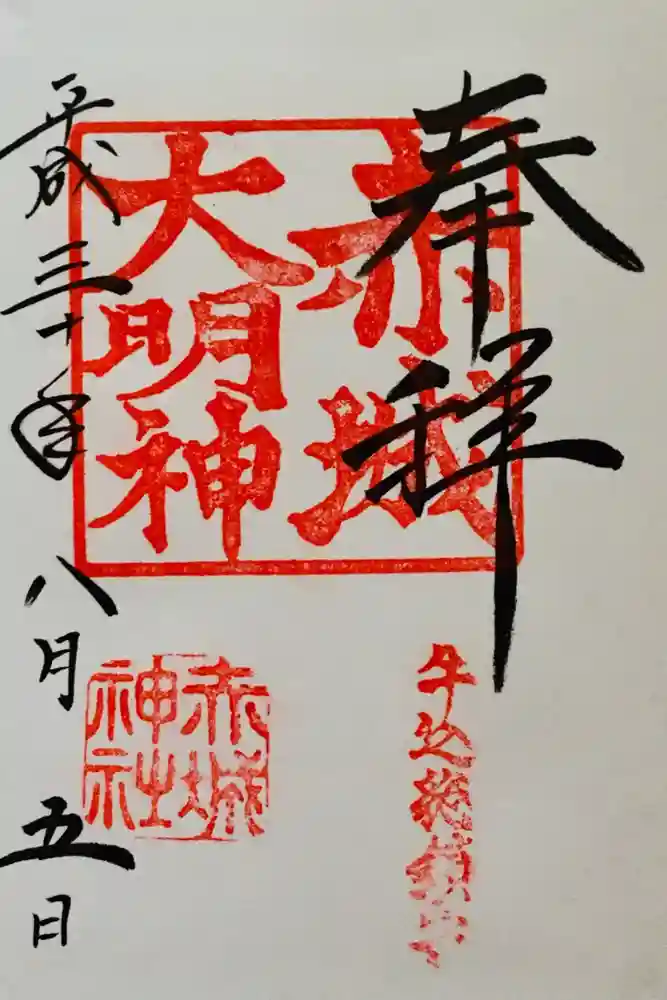 奉拝
赤城
大明神
牛込総鎮守
赤城
神社
平成三十年
八月
五日